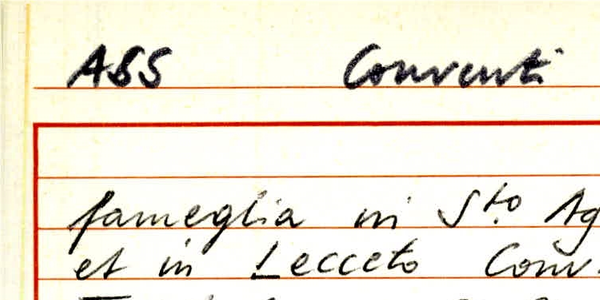 ASS Conventi
fameglia in S.to Ag
et in Lecceto Conv.